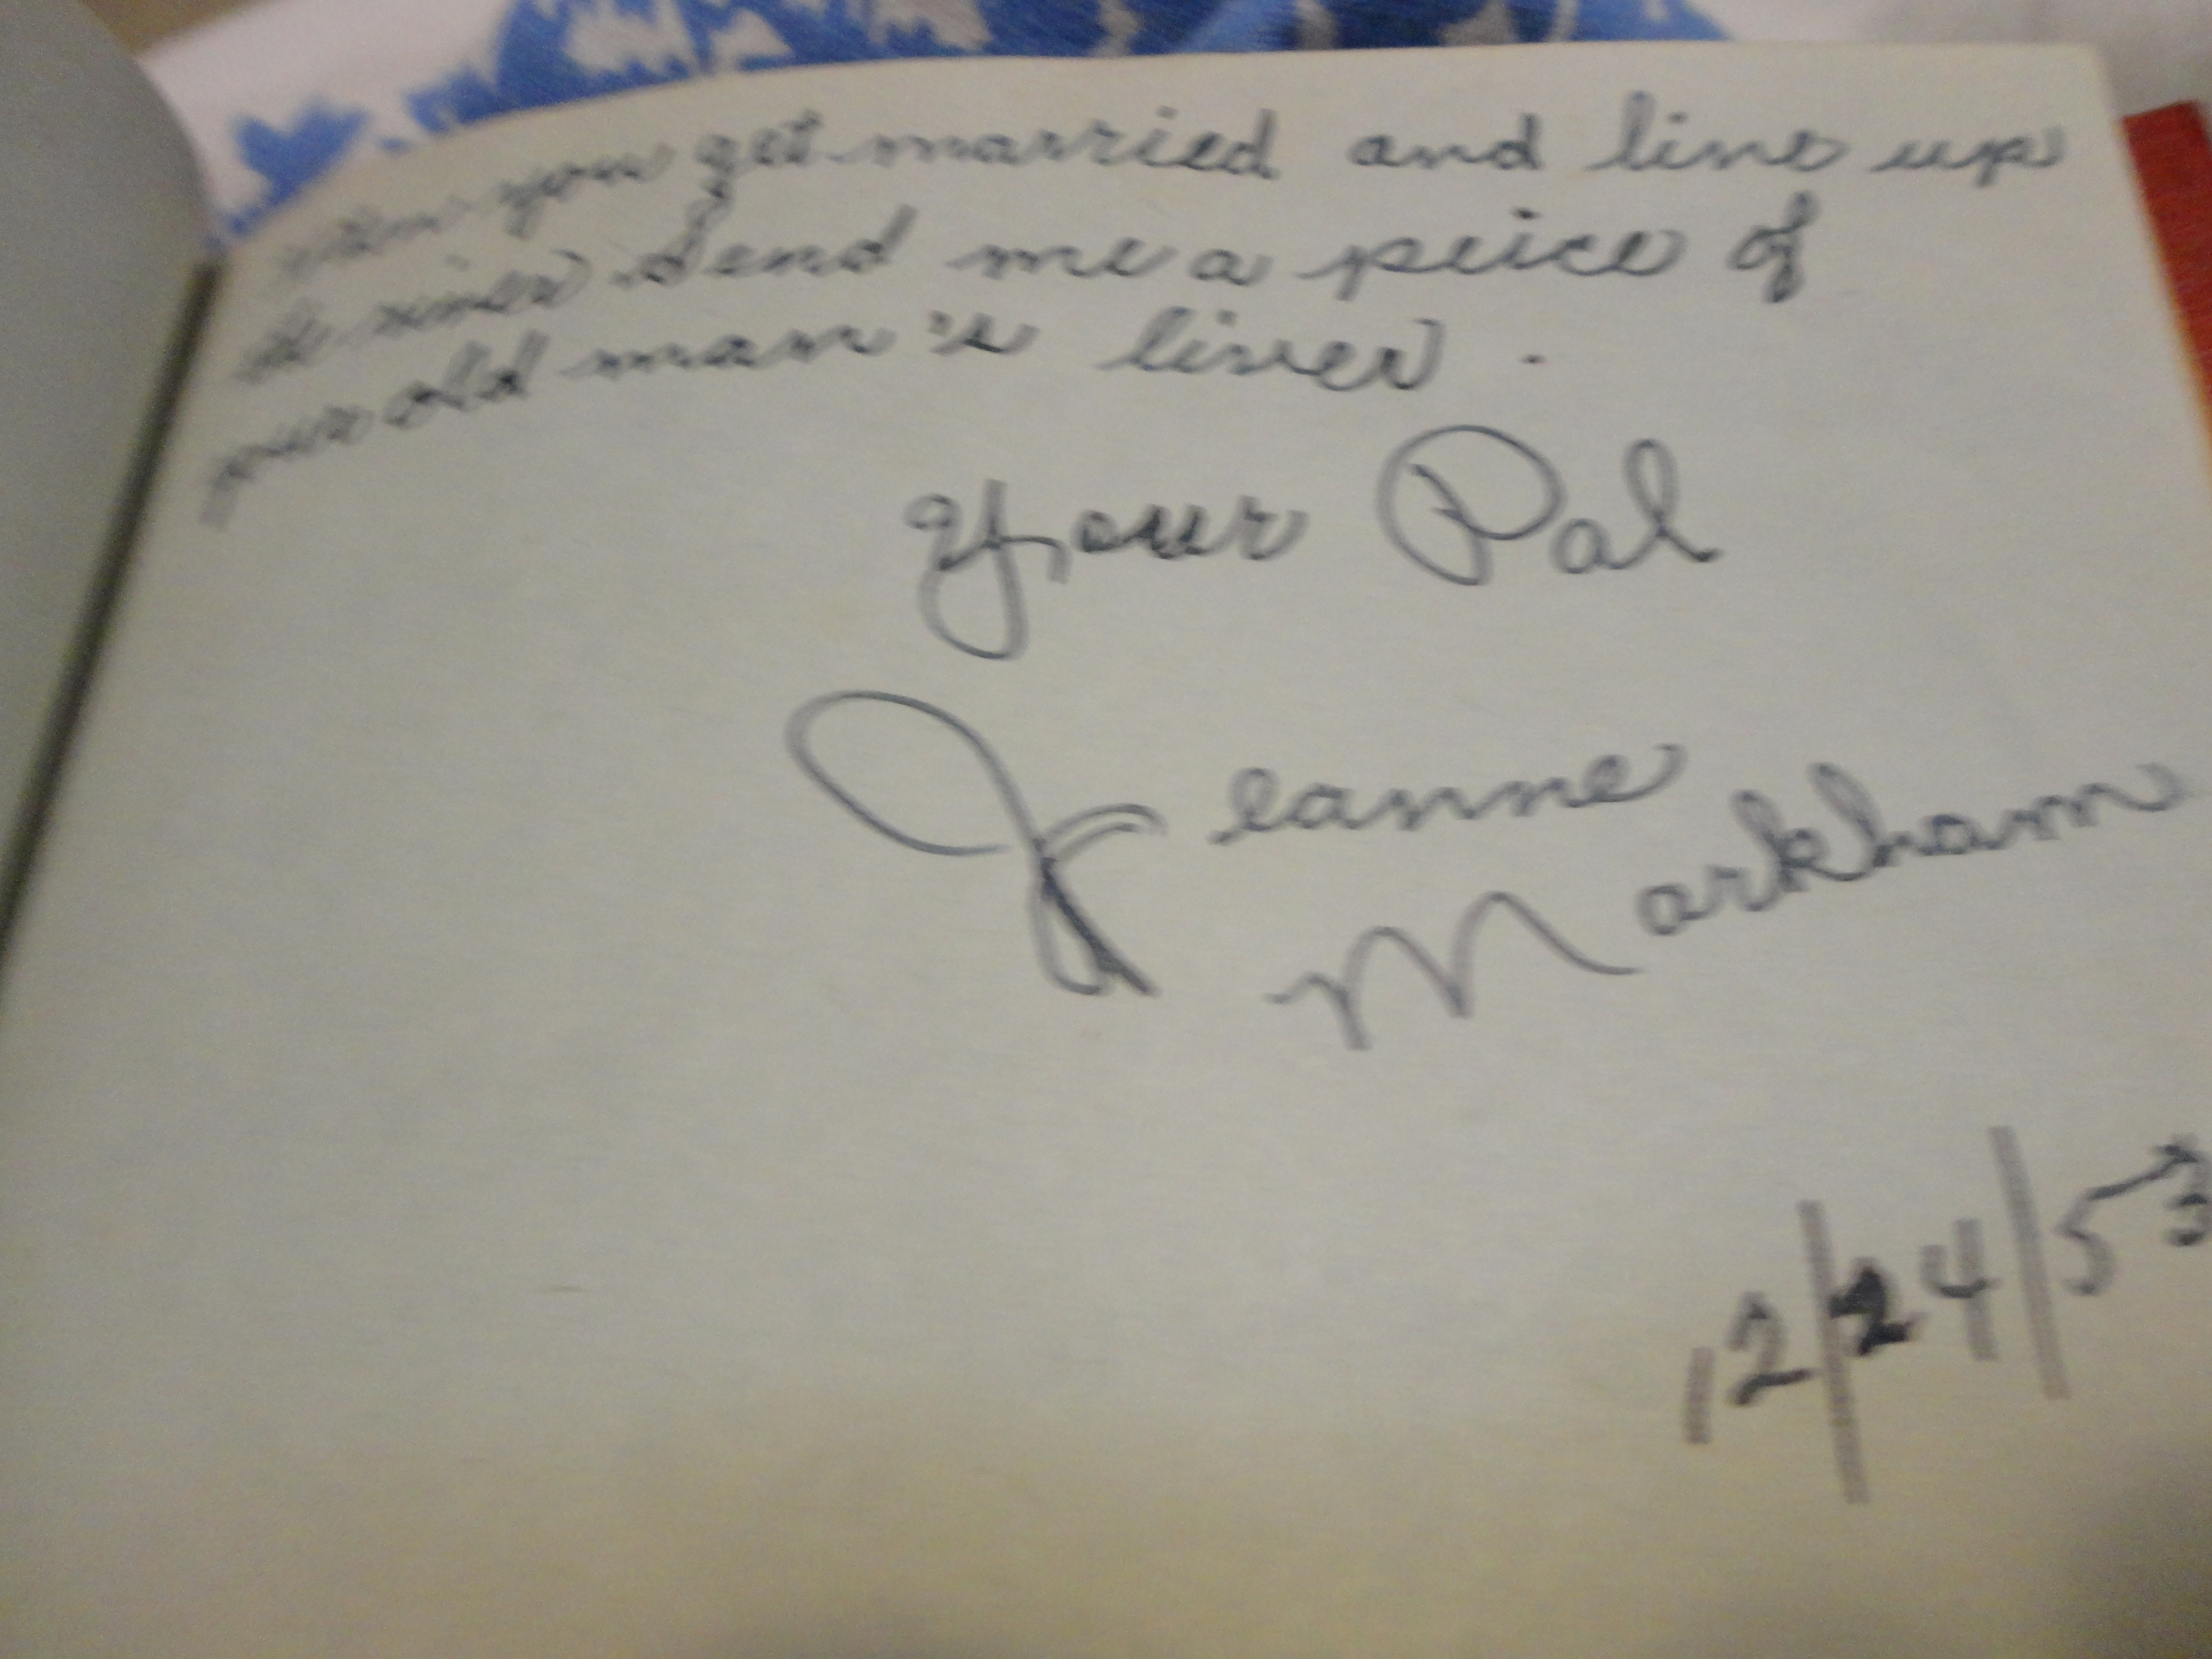 when you get married and line up
the river send me a peice of
your old man's liver.
Your Pal
Jeanne
Markham
12/24/53